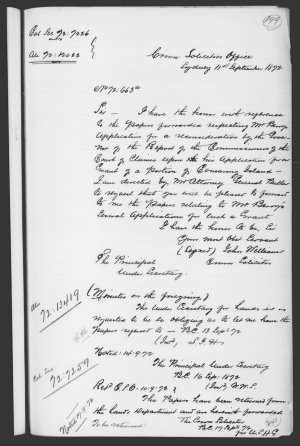 Col Sec 72:7226
Als 72:12022
199
Crown Solicitors Office
Sydney 11th September 1872
No 72.662
Sir – I have the honor with reference
to the Papers forwarded respecting Mr Berry's
Application for a reconsideration by the Gover
nor of the Report of the Commissioner of the
Court of Claims upon the his Application for a
Grant of a Portion of Comarong Island –
I am directed by Mr Attorney General Butler
to request that you will be pleased to forward
to me the Papers relating to Mr Berry's
several Applications for such a Grant
I have the Honor to be Sir
Your most Obt Servant
(Signed) John Williams
Crown Solicitor
The Principal
Under Secretary
Als
72:12419
(Minutes on the foregoing)
The Under Secretary for Lands is
requested to be so obliging as to let me have the
Papers referred to – B.C. 13 Sept 72
(Int)
Noted 14.9.72
Col Sec
72:7259
The Principal Under Secretary
B.C. 16 Sep: 1872
(Int) W.W.S.
The Papers have been returned from
the Lands Department and are herewith forwarded
to be returned
The Crown Solicitor
B.C. 17 Sept 72